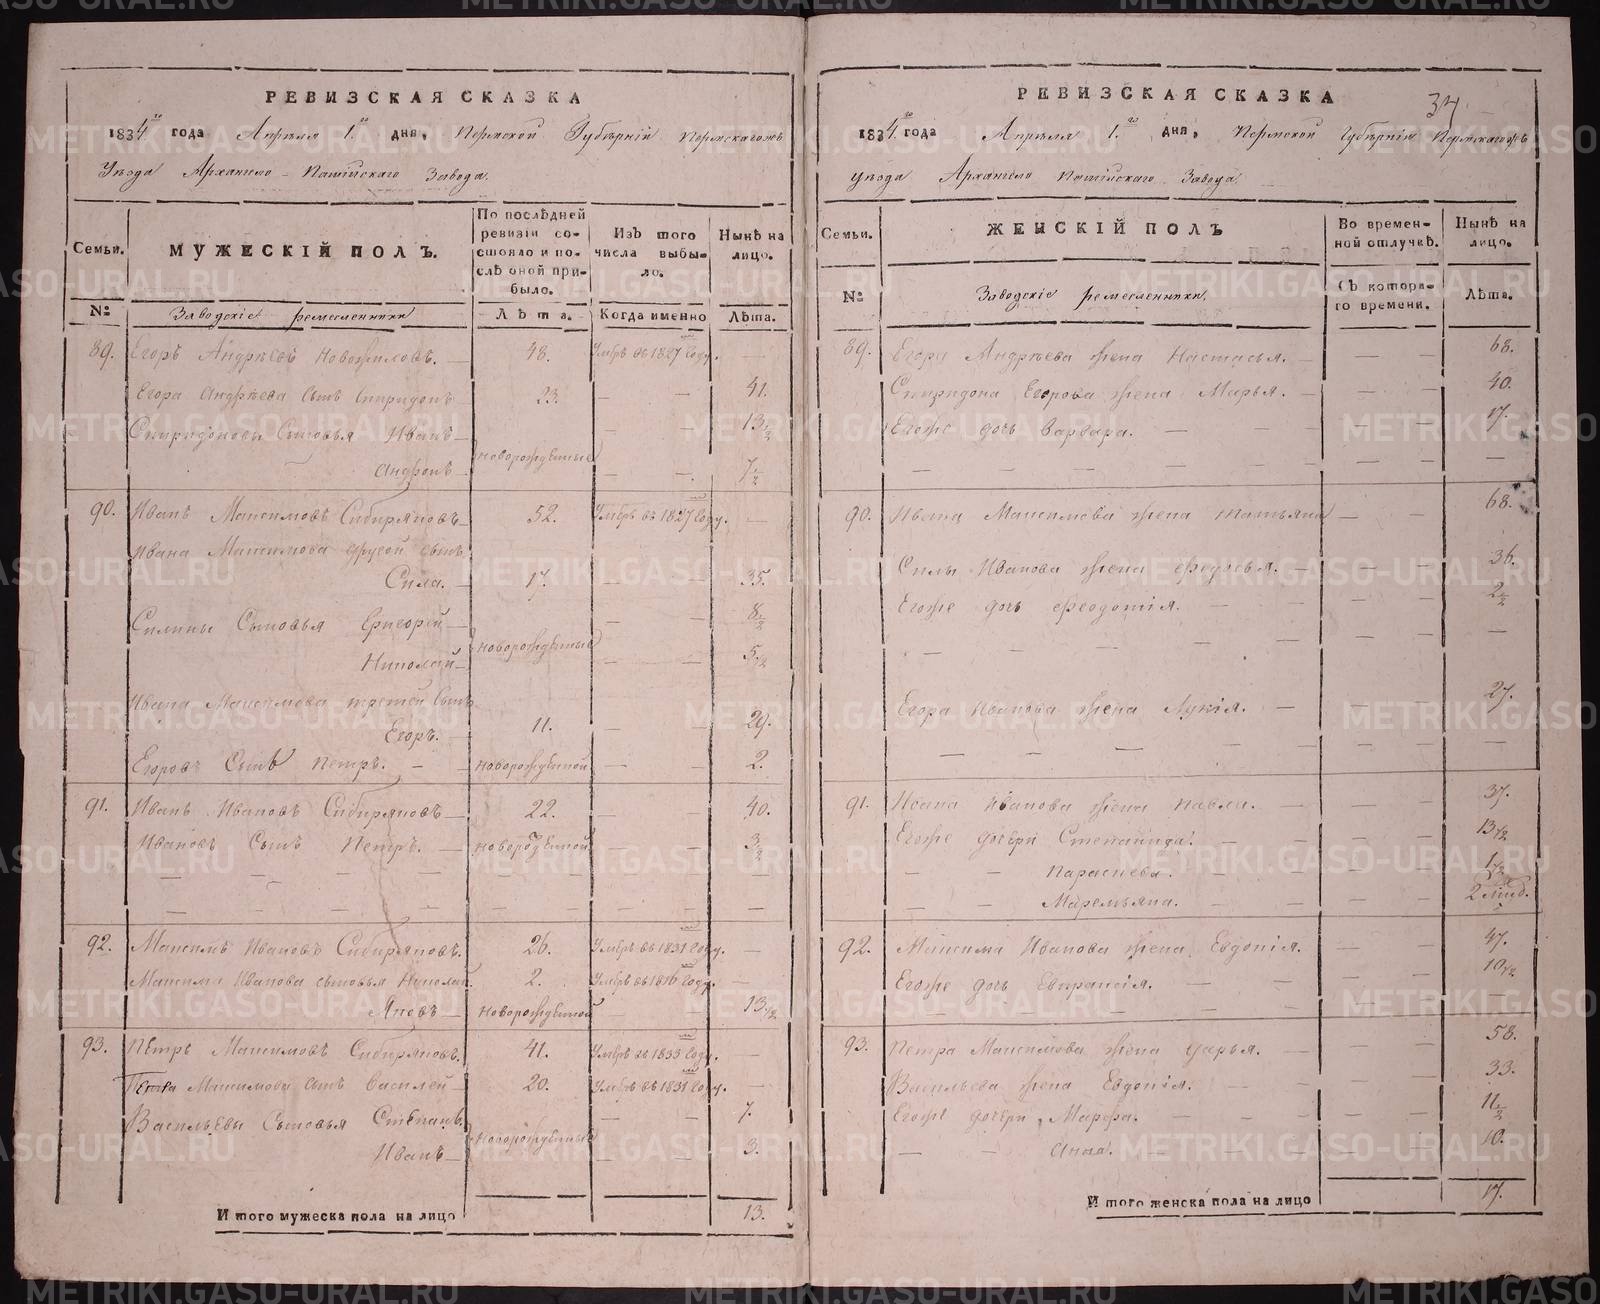 РЕВИЗСКАЯ СКАЗКА
1834го года Апрѣля 1го дня, Пермской Губѣрніи Пермскагожъ
Уѣзда Архангело-Пашійскаго Завода.
Семьи.
МУЖЕСКІЙ ПОЛЪ.
По послѣдней ревизіи состояло и послѣ оной прибыло.
Изъ того числа выбыло.
Нынѣ на лицо.
№
Заводскіе ремесленники
Лѣта.
Когда именно
Лѣта.
89. Егоръ Андрѣевъ Новожиловъ. — 48. Умѣръ въ 1827 Году. —
Егора Андрѣева сынъ Спиридонъ 23. — — 41.
Спиридоновы Сыновья Иванъ — новорожденные — — 13 1/2
Андронъ — — — 7 1/2
90. Иванъ Максимовъ Сибиряковъ — 52. Умѣръ въ 1827 Году. —
Ивана Максимова другой сынъ
Сила. — 17. — — 35.
Силины Сыновья Григорій — новорожденные — — 8 1/2
Николай — — — 5 1/2
Ивана Максимова третей сынъ
Егоръ. — 11. — — 29.
Егоровъ Сынъ Петръ. — — новорожденной — — 2.
91. Иванъ Ивановъ Сибиряковъ — 22. — — 40.
Ивановъ Сынъ Петръ. — новорожденной — — 3 1/2
92. Максимъ Ивановъ Сибиряковъ. 26. Умѣръ въ 1831 Году. —
Максима Иванова сыновья Николай. 2. Умѣръ въ 1816 Году. —
Яковъ — новорожденной — — 13 1/2
93. Петръ Максимовъ Сибиряковъ. 41. Умѣръ въ 1833 Году. —
Петра Максимова сынъ Василей — 20. Умѣръ въ 1831 Году. —
Васильевы Сыновья Степанъ новорожденные — — 7.
Иванъ — — — 3.
Итого мужеска пола на лицо 13.
34
РЕВИЗСКАЯ СКАЗКА
1834го года Апрѣля 1го дня, Пермской Губѣрніи Пермскагожъ
Уѣзда Архангело Пашійскаго Завода.
Семьи.
ЖЕНСКІЙ ПОЛЪ
Во временной отлучкѣ.
Нынѣ на лицо.
№
Заводскіе ремесленники.
Съ котораго времени.
Лѣта.
89. Егора Андрѣева жена Настасья. — — — 68.
Спиридона Егорова жена Марья. — — — 40.
Егоже дочь Варвара. — — — 17.
90. Ивана Максимова жена Татьяна — — 68.
Силы Иванова жена Федосья. — — — 36.
Егоже дочь Феодотія. — — — 2 1/2
Егора Иванова жена Лукія. — — — 27.
91. Ивана Иванова жена Павла. — — — 37.
Егоже дочери Степанида. — — — 13 1/2
Параскева. — — — 1 1/2
Маремьяна. — — —
92. Максима Иванова жена Евдокія. — — 47.
Егоже дочь Евпраксія. — — — 10 1/2
93. Петра Максимова жена Дарья. — — — 58.
Васильева жена Евдокія. — — — 33.
Егоже дочери Марфа. — — — 11 1/2
Анна. — — — 10.
Итого женска пола на лицо 17.
METRIKI.GASO-URAL.RU